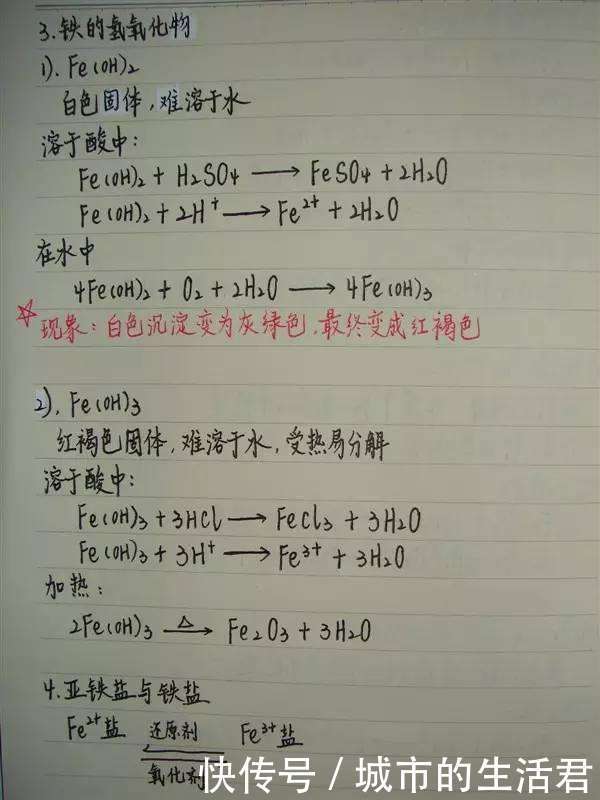 3.铁的氢氧化物
1). Fe(OH)₂
白色固体,难溶于水
溶于酸中:
Fe(OH)₂ + H₂SO₄ ⟶ FeSO₄ + 2H₂O
Fe(OH)₂ + 2H⁺ ⟶ Fe²⁺ + 2H₂O
在水中
4Fe(OH)₂ + O₂ + 2H₂O ⟶ 4Fe(OH)₃
☆现象:白色沉淀变为灰绿色,最终变成红褐色
2). Fe(OH)₃
红褐色固体,难溶于水,受热易分解
溶于酸中:
Fe(OH)₃ + 3HCl ⟶ FeCl₃ + 3H₂O
Fe(OH)₃ + 3H⁺ ⟶ Fe³⁺ + 3H₂O
加热:
2Fe(OH)₃ ⟶△ Fe₂O₃ + 3H₂O
4.亚铁盐与铁盐
Fe²⁺盐 还原剂 Fe³⁺盐
氧化剂
快传号/城市的生活君